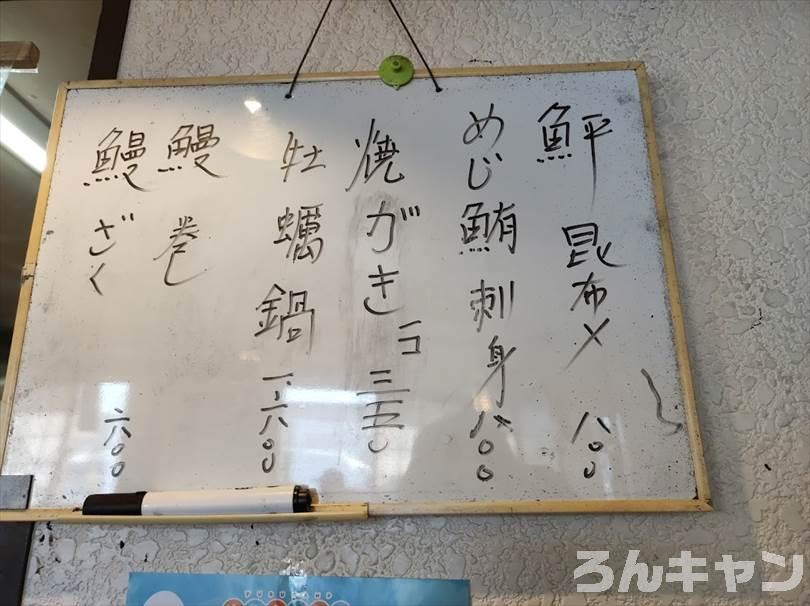 鮃昆布〆 八〇〇
めじ鮪刺身 八〇〇
焼がき一コ 三五〇
牡蠣鍋 一、六〇〇
鰻巻
鰻ざく 六〇〇
ろんキャン